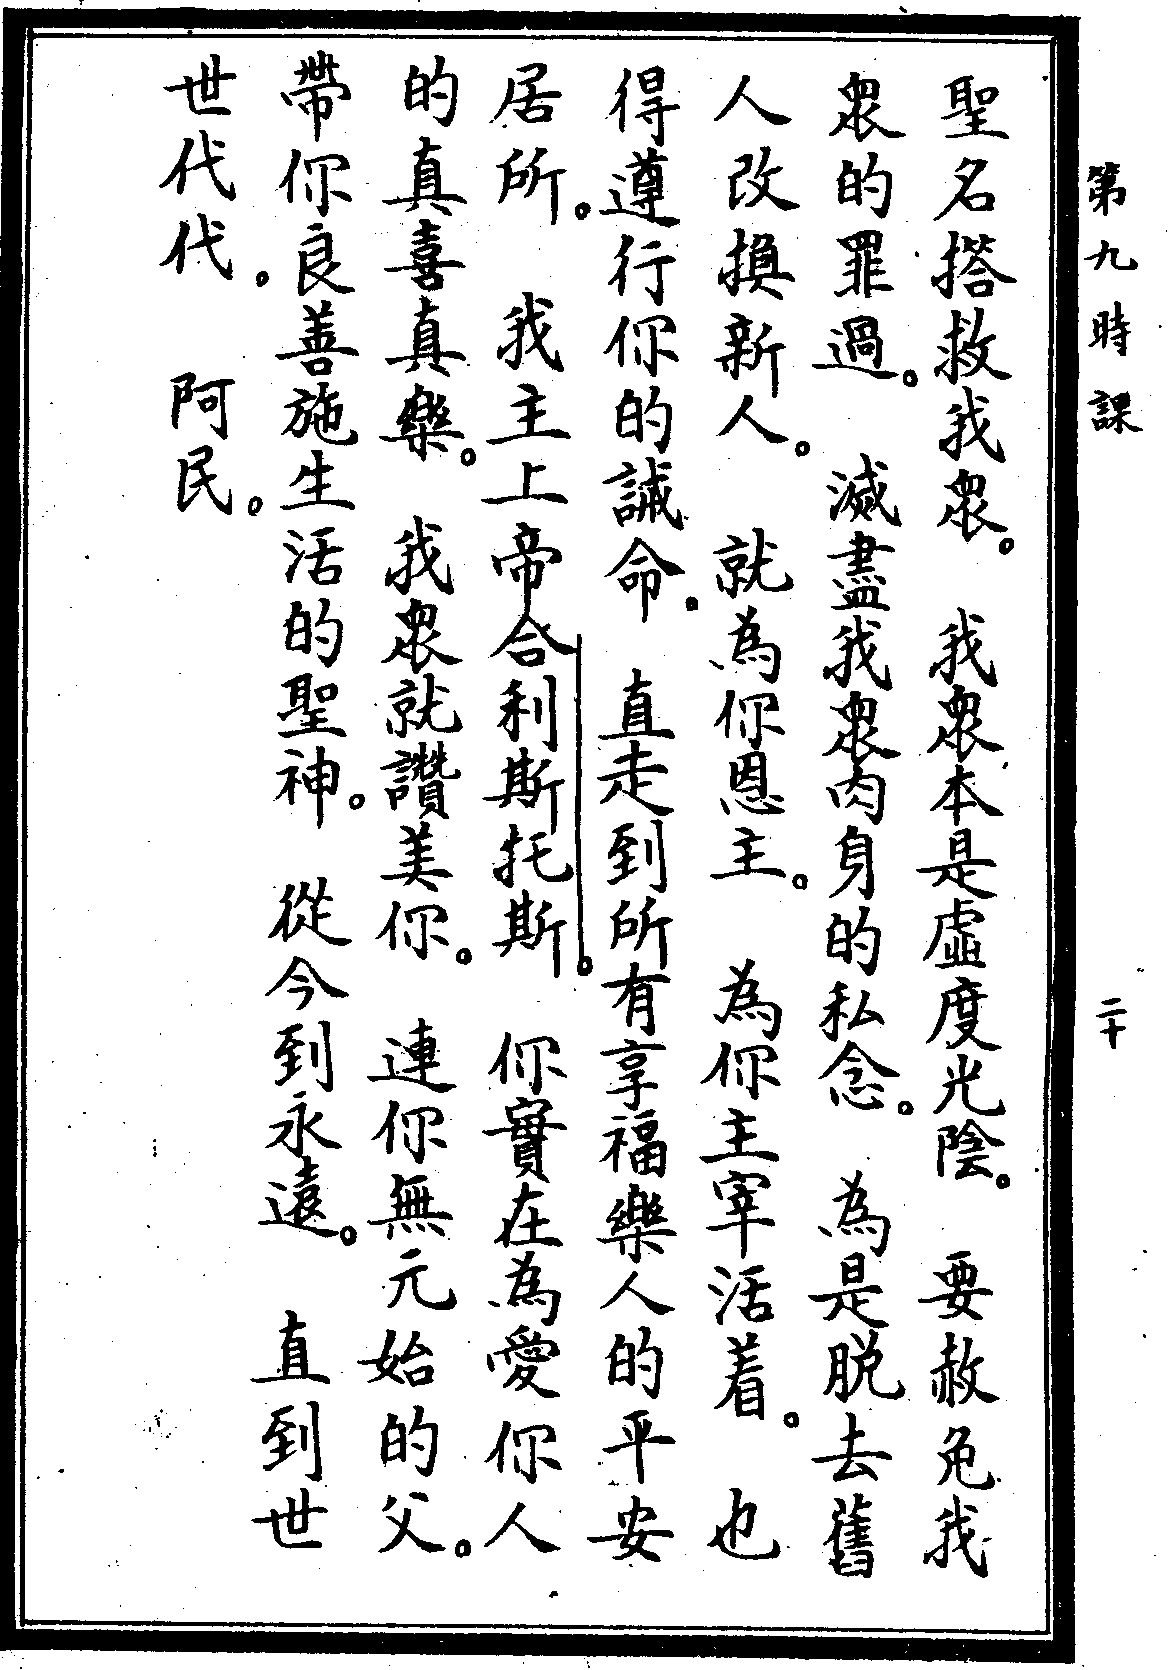 第九時課
二十
聖名搭救我衆。 我衆本是虛度光陰。 要赦免我
衆的罪過。 滅盡我衆肉身的私念。 為是脱去舊
人改換新人。 就為你恩主。 為你主宰活着。 也
得遵行你的誡命。 直走到所有享福樂人的平安
居所。 我主上帝合利斯托斯。 你實在為愛你人
的真喜真樂。 我衆就讚美你。 連你無元始的父。
帶你良善施生活的聖神。 從今到永遠。 直到世
世代代。 阿民。